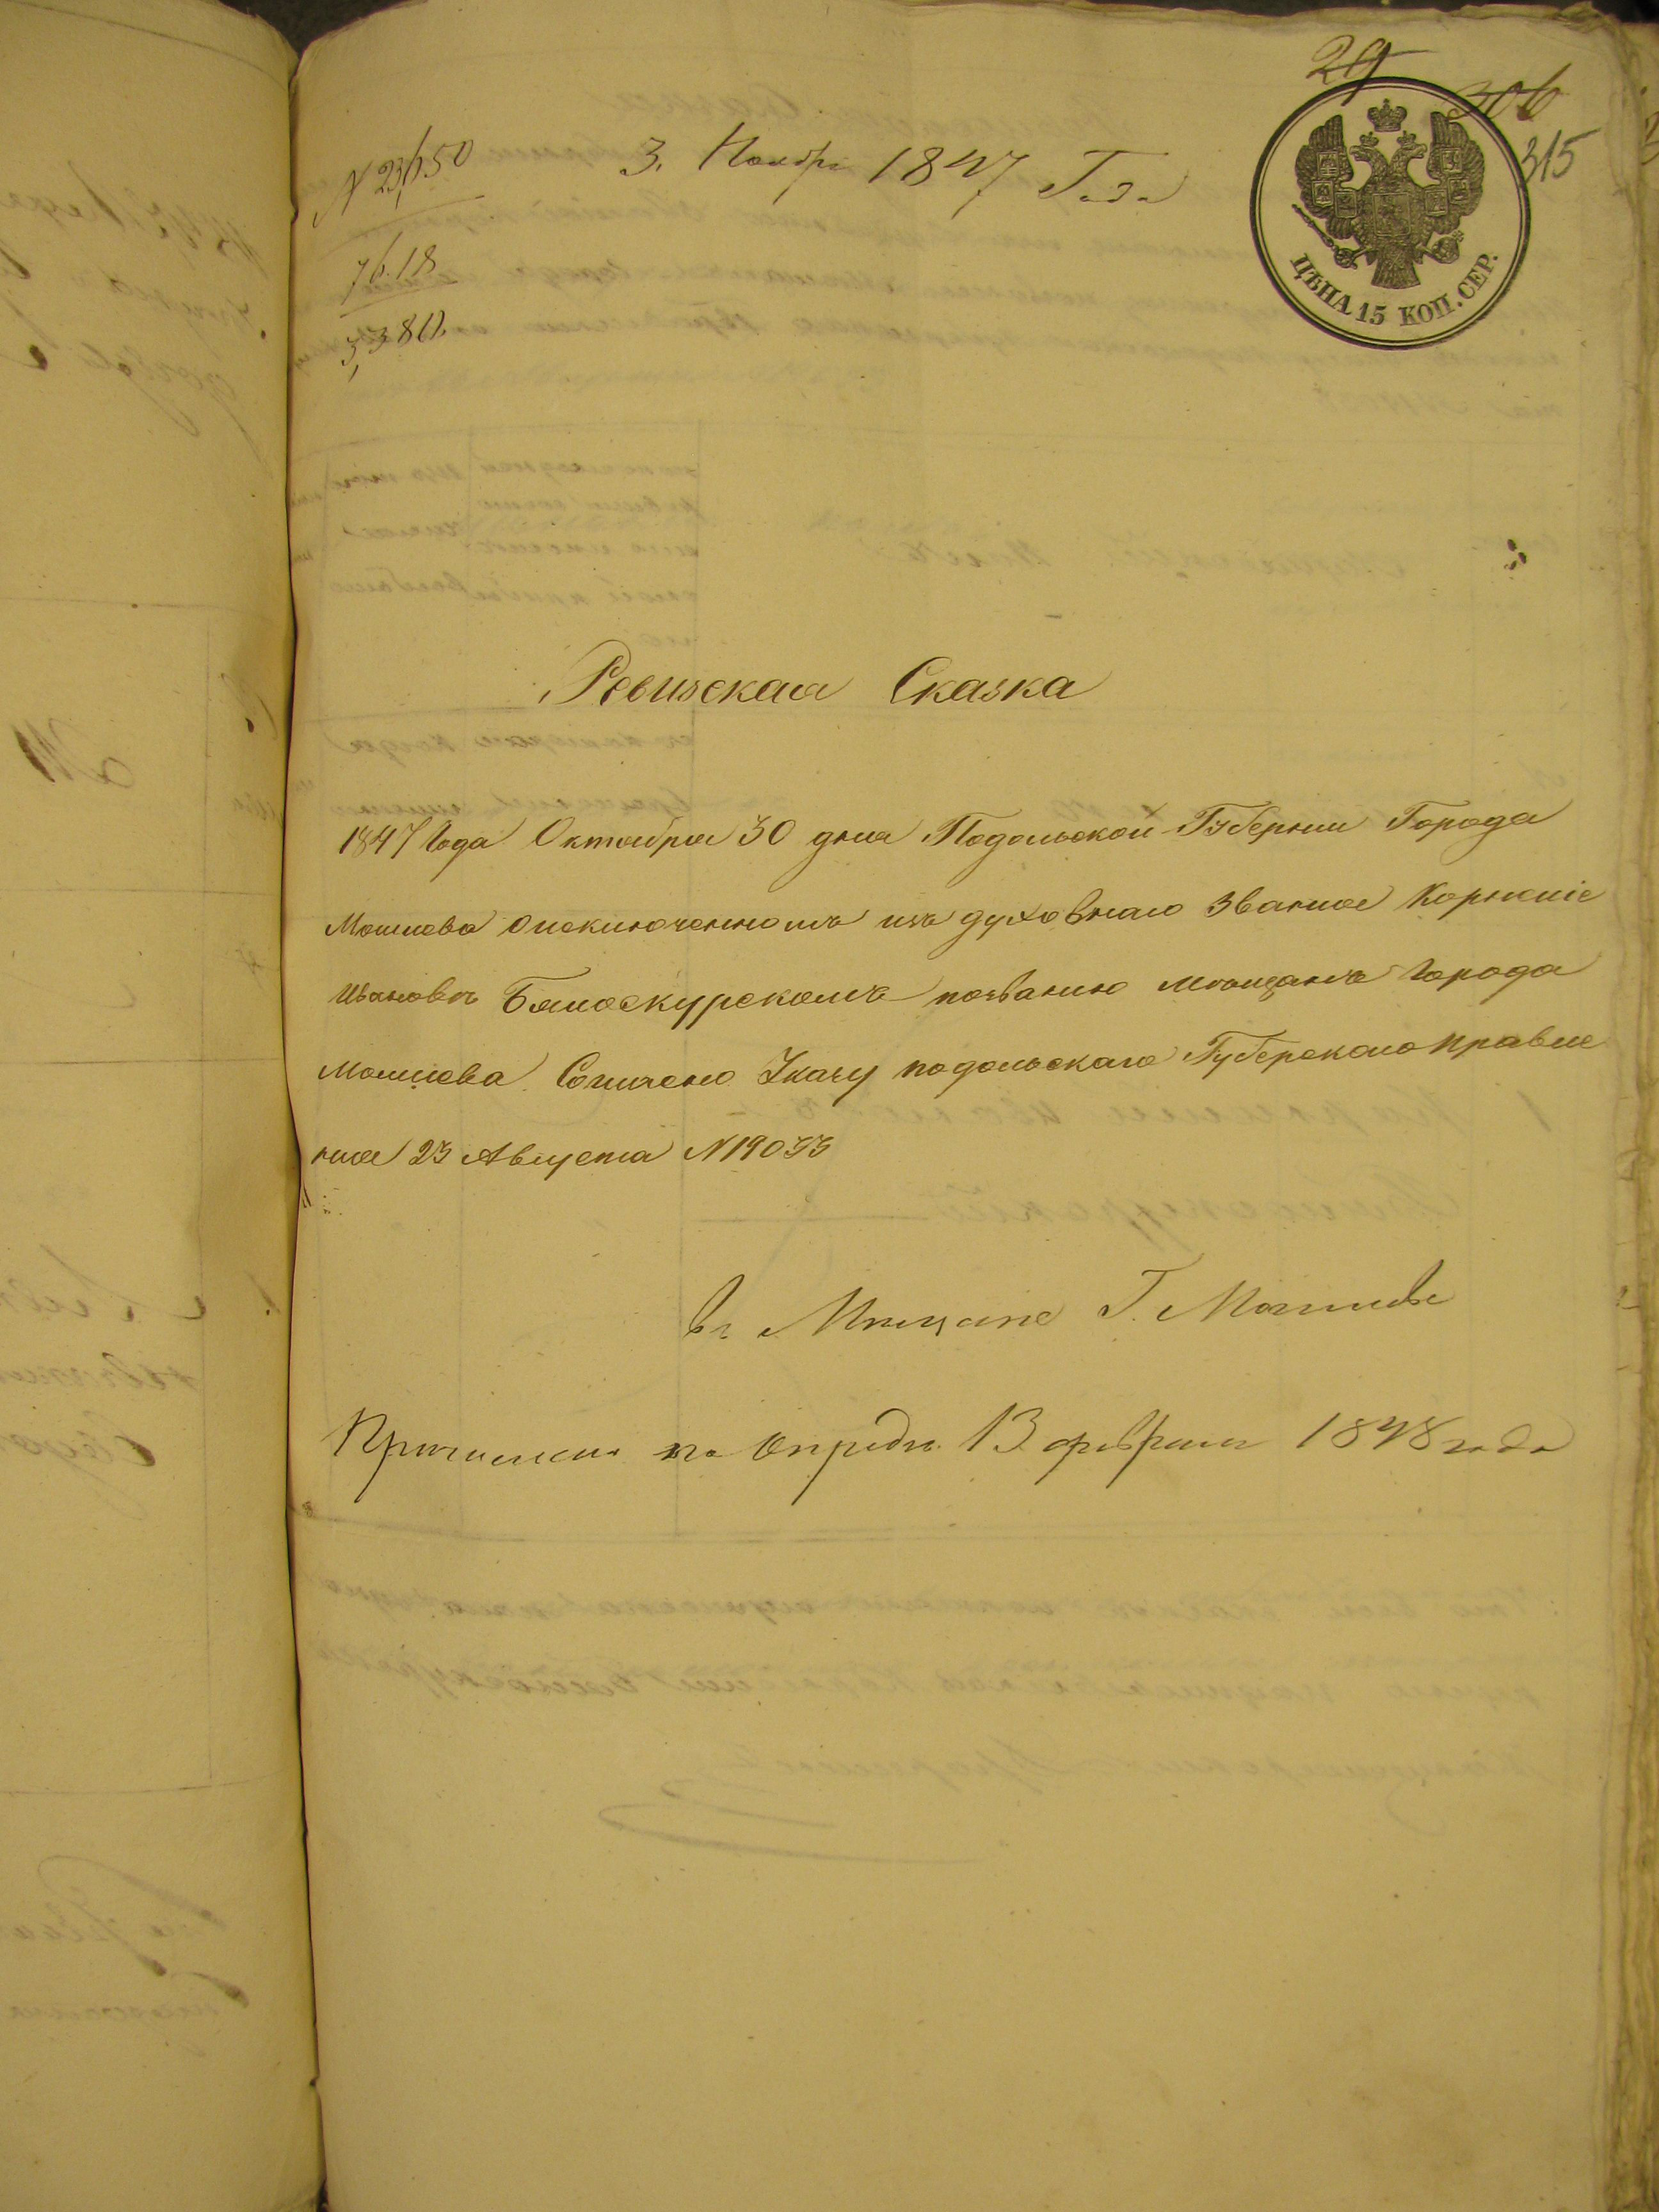 29
306
315
N 23,650
3. Ноября 1847 Года
76.18
3,380.
ЦѢНА 15 КОП. СЕР.
Ревизская Сказка
1847 Года Октября 30 дня Подольской Губернии Города
Могилева о исключенномъ изъ духовнаго званія Корниліе
Ивановѣ Бялоскурскомъ названию мѣщанъ Города
Могилева Согласно Указу подольскаго Губерскаго правле
ния 23 Августа N 19033
въ Мѣщане Г. Могилевъ
Причисленъ по опредѣ. 13 февраля 1848 года